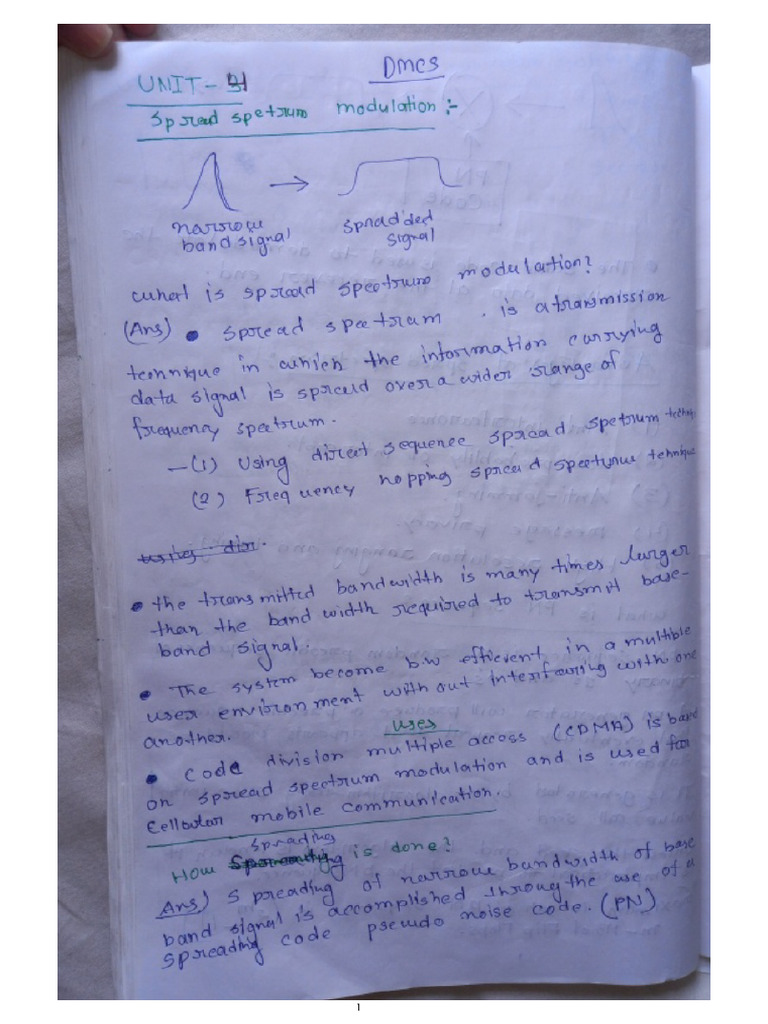 DMCS
UNIT - 4
Spread spetrum modulation :-
narrow
band signal
spradded
signal
what is spread spectrum modulation?
(Ans) • spread spectrum . is a transmission
technique in which the information carrying
data signal is spread over a wider range of
frequency spectrum.
- (1) Using direct sequence spread spetrum
(2) Frequency hopping spread technique
• the transmitted bandwidth is many times larger
than the band width required to transmit base-
band signal.
• The system become b.w efficient in a multiple
user environment with out interfearing with one
another.
uses
• code division multiple access (CDMA) is
on spread spectrum modulation and is used for
Cellular mobile communication.
spreading
How is done?
Ans) spreading of narrow bandwidth of base
band signal is accomplished through the use of a
spreading code pseudo noise code. (PN)
1